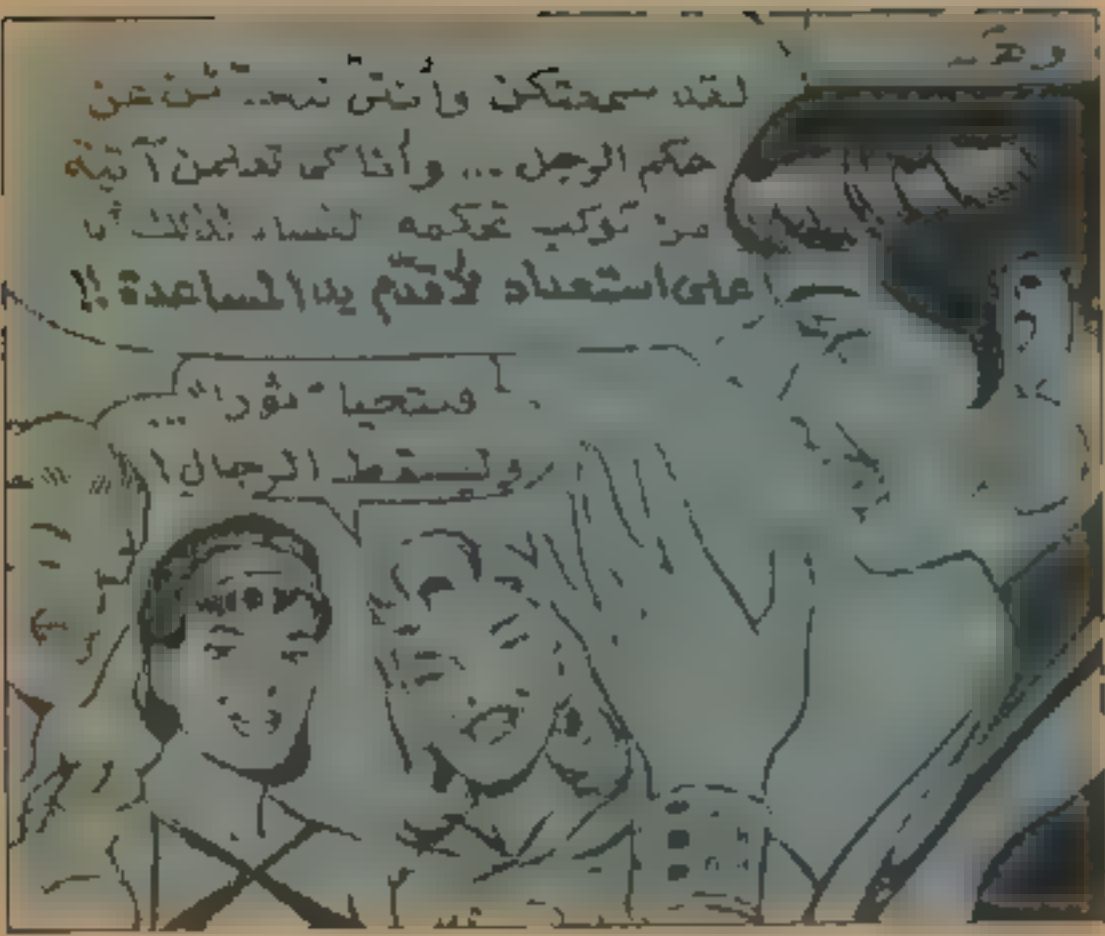 لقد سمعتكن وأنتن تبحثن عن
حكم الرجل ... وأنا كى تعلمن آتية
من كوكب تحكمه النساء لذلك أنا
على استعداد لأقدم يد المساعدة !!
فتحيا "ثورا" ...
ولسقط الرجال !